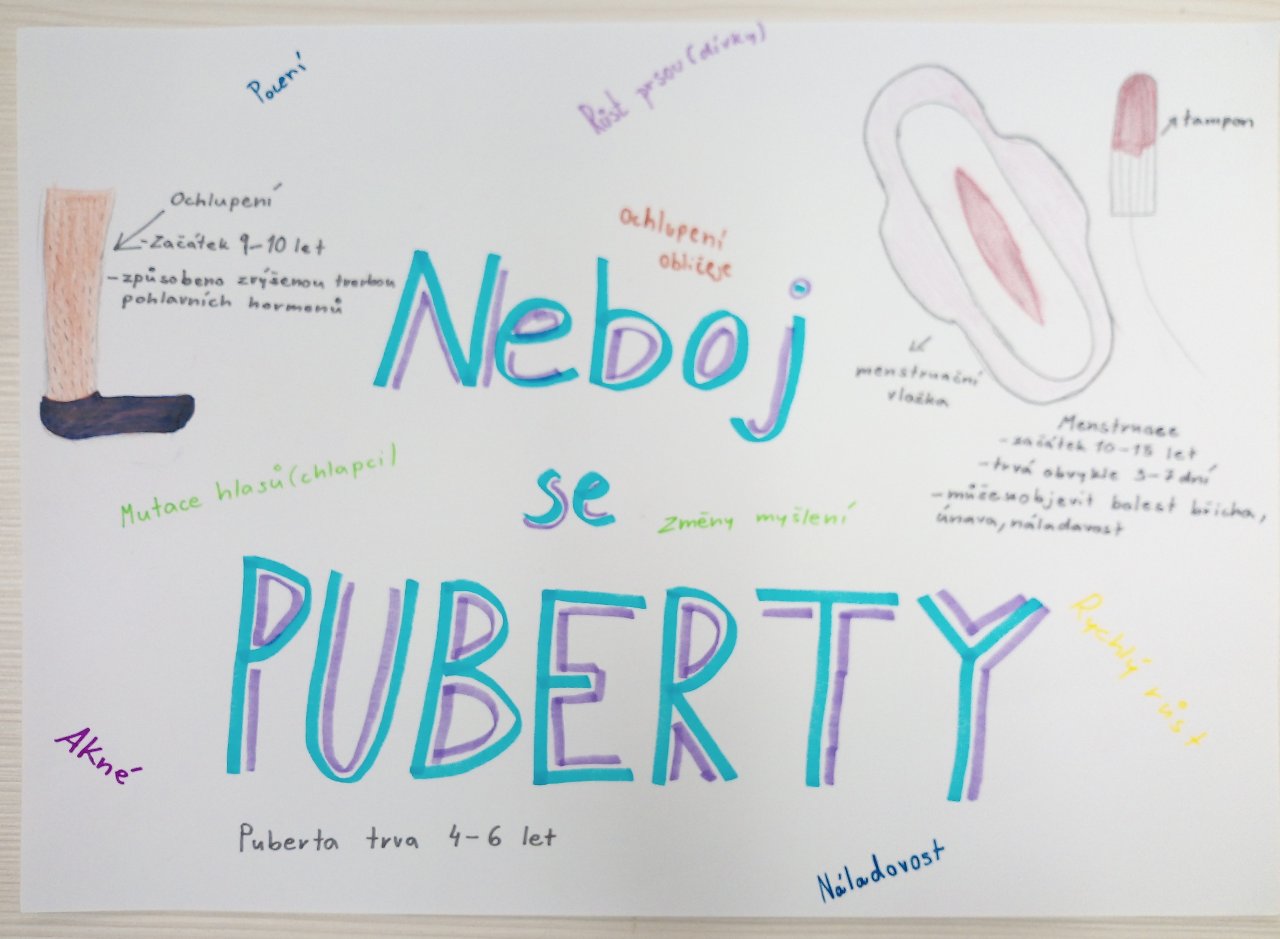 Pocení
Růst prsou (dívky)
tampon
Ochlupení
-Začátek 9-10 let
-způsobeno zvýšenou tvorbou
pohlavních hormonů
Ochlupení
obličeje
Neboj
se
PUBERTY
menstruační
vložka
Menstruace
-začátek 10-15 let
-trvá obvykle 3-7 dní
-může objevit bolest břicha,
únava, náladovost
Mutace hlasů (chlapci)
Změny myšlení
Rychlý růst
Akné
Puberta trva 4-6 let
Náladovost